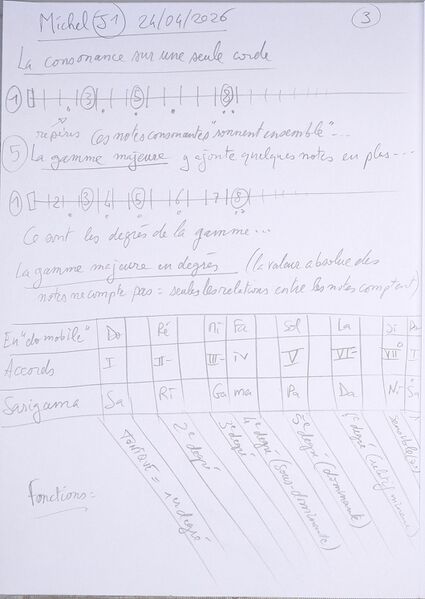 Michel J1 24/04/2026 3
La consonance sur une seule corde
1 3 5 8
repères Ces notes consonantes "sonnent ensemble"...
5 La gamme majeure y ajoute quelques notes en plus...
1 2 3 4 5 6 7 8
Ce sont les degrés de la gamme...
La gamme majeure en degrés (la valeur absolue des
notes ne compte pas = seules les relations entre les notes comptent)
En "do mobile" Do Ré Mi Fa Sol La Si Do
Accords I II- III- IV V VI- VII° I
Sarigama Sa Ri Ga ma Pa Da Ni Sa
Fonctions =
TONIQUE = 1er degré
2e degré
3e degré
4e degré (sous dominante)
5e degré (dominante)
degré (relatif mineur)
sensible